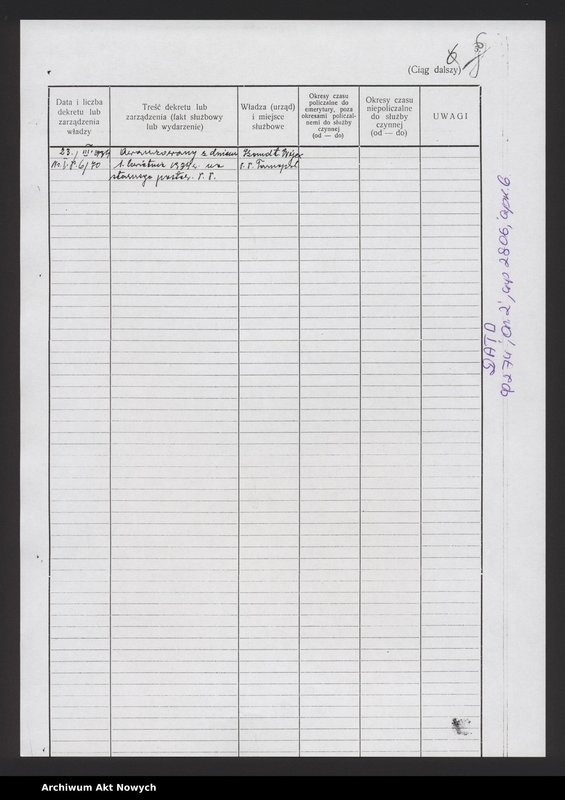 6
(Ciąg dalszy)
Data i liczba
dekretu lub
zarządzenia
władzy
Treść dekretu lub
zarządzenia (fakt służbowy
lub wydarzenie)
Władza (urząd)
i miejsce
służbowe
Okresy czasu
policzalne do
emerytury, poza
okresami policzal-
nemi do służby
czynnej
(od — do)
Okresy czasu
niepoliczalne
do służby
czynnej
(od — do)
UWAGI
23. III. 1939
Nr. I.P. 6/70
Awansowany z dniem
1. kwietnia 1939 r. na
starszego poster. P. P.
Komdt. Woj.
P. P. Tarnopol
ДАТО
ф 274, оп. 2, спр 2806, арк. 6
Archiwum Akt Nowych